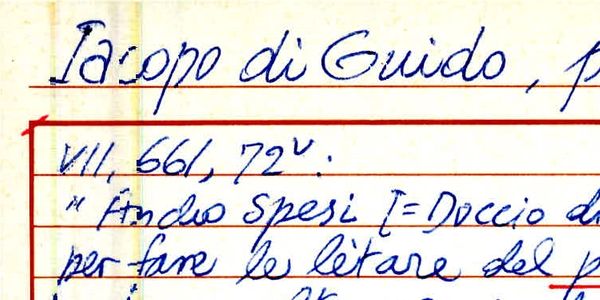 Iacopo di Guido, p
VII, 661, 72v:
"Ancho Spesi [=Doccio di
per fare le lètare del p